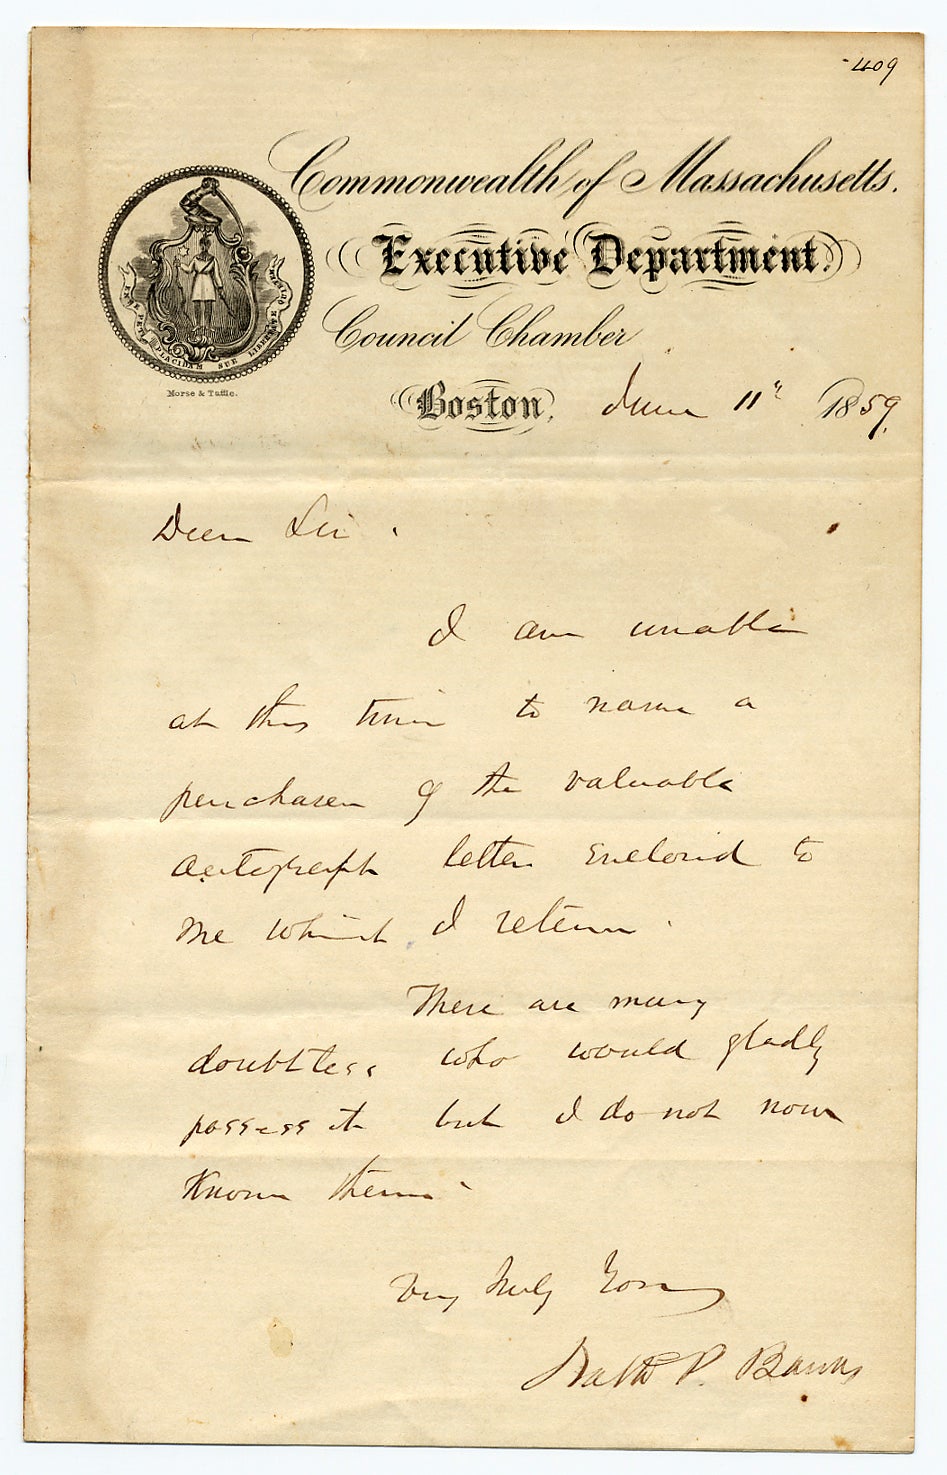 409
Commonwealth of Massachusetts.
Executive Department.
Council Chamber
ENSE PETIT PLACIDAM SUB LIBERTATE QUIETEM
Morse & Tuttle.
Boston, June 11th 1859.
Dear Sir.
I am unable
at this time to name a
purchaser of the valuable
autograph letter enclosed to
me which I return.
There are many
doubtless who would gladly
possess it but I do not now
know them.
Very truly Yours
Nathl P. Banks